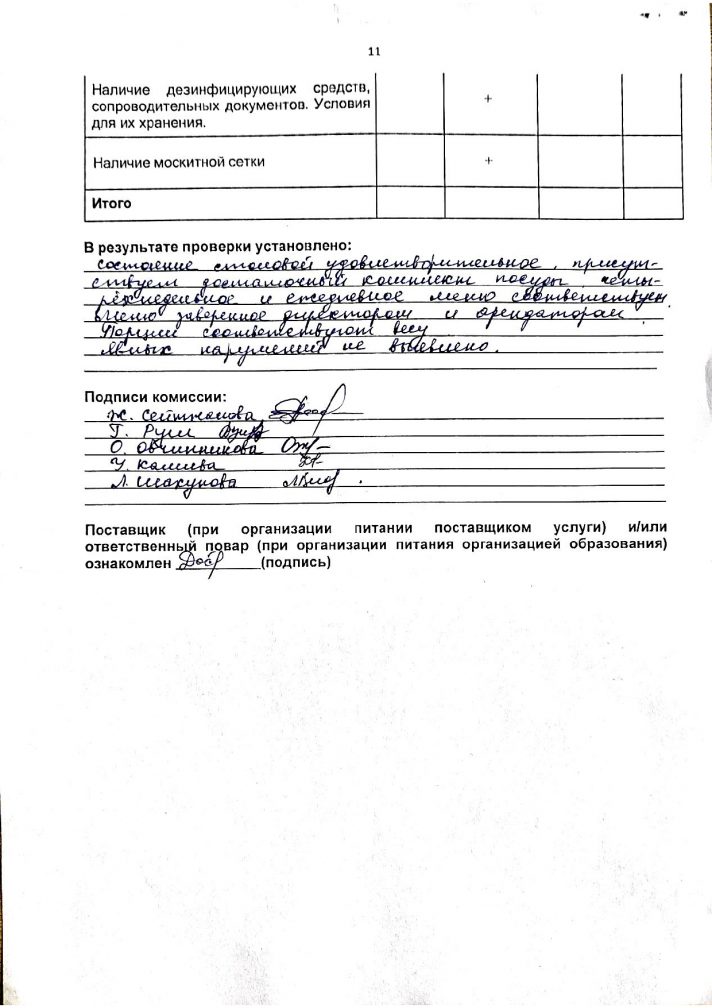 11
Наличие дезинфицирующих средств,
сопроводительных документов. Условия
для их хранения.
+
Наличие москитной сетки
+
Итого
В результате проверки установлено:
состояние столовой удовлетворительное, присут-
ствует достаточный комплект посуды четы-
рехнедельное и ежедневное меню соответствует
меню заверенное директором и арендатором
Порции соответствуют весу
Явных нарушений не выявлено.
Подписи комиссии:
Ж. Сейтжанова
Г. Руш
О. Овчинникова
У. Калиева
Л. Шакунова
Поставщик (при организации питании поставщиком услуги) и/или
ответственный повар (при организации питания организацией образования)
ознакомлен (подпись)